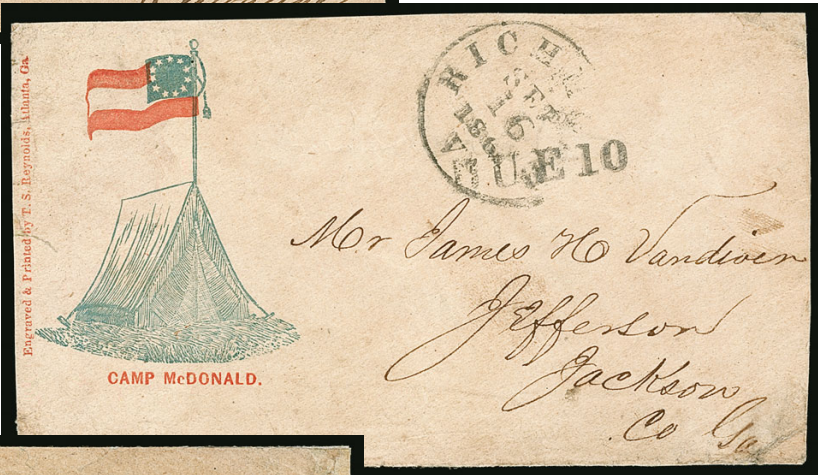 Engraved & Printed by T. S. Reynolds, Atlanta, Ga.
CAMP McDONALD.
RICHM
VA.
SEP
16
DUE 10
Mr James H Vandiver
Jefferson
Jackson
Co Ga